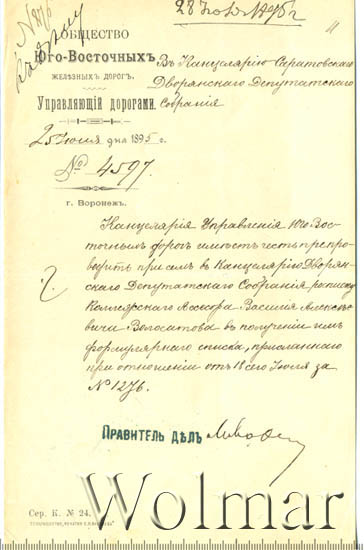 28 Іюля 1895 г
№ 876
ОБЩЕСТВО
Юго-Восточныхъ
ЖЕЛѢЗНЫХЪ ДОРОГЪ.
Управляющій дорогами.
25 Іюля дня 1895 г.
№ 4597.
г. Воронежъ.
Въ Канцелярію Саратовскаго
Дворянскаго Депутатскаго
Собранія
Канцелярія Управленія Юго-Вос-
точныхъ дорогъ имѣетъ честь препро-
водить при семъ въ Канцелярію Дворян-
скаго Депутатскаго Собранія расписку
Коллежскаго Ассесора Василія Алексѣе-
вича Волосатова въ полученіи имъ
формулярнаго списка, присланнаго
при отношеніи отъ 18 сего Іюля за
№ 1276.
ПРАВИТЕЛЬ ДѢЛЪ
Сер. К. № 24.
Wolmar